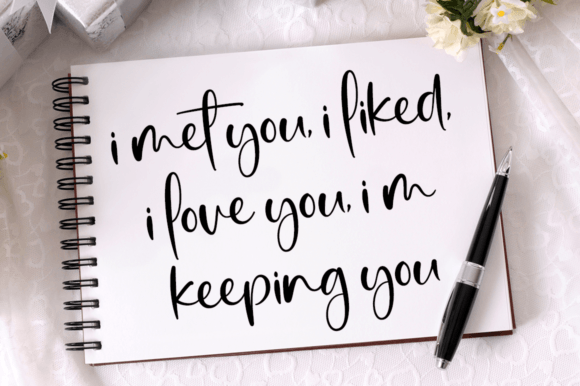 i met you, i liked,
i love you, i m
keeping you